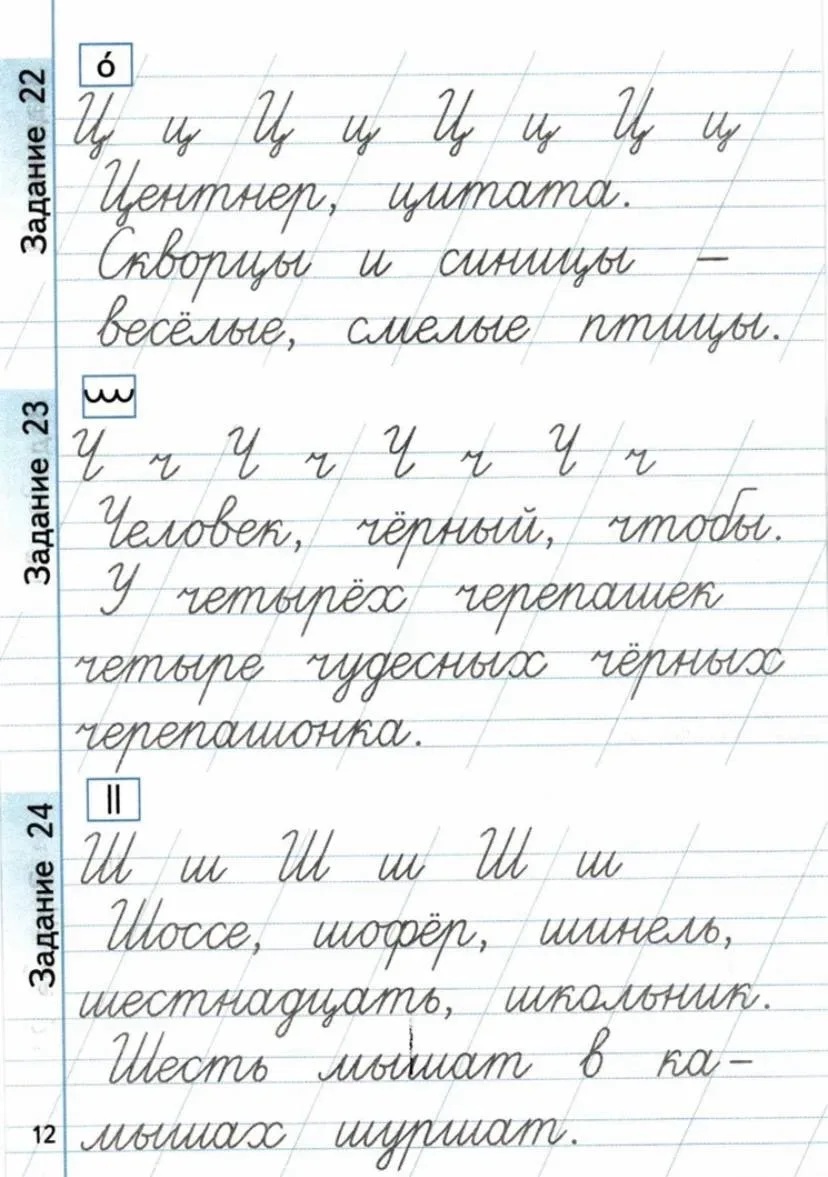 Задание 22
ó
Ц ц Ц ц Ц ц Ц ц
Центнер, цитата.
Скворцы и синицы –
весёлые, смелые птицы.
Задание 23
Ч ч Ч ч Ч ч Ч ч
Человек, чёрный, чтобы.
У четырёх черепашек
четыре чудесных чёрных
черепашонка.
Задание 24
||
Ш ш Ш ш Ш ш
Шоссе, шофёр, шинель,
шестнадцать, школьник.
Шесть мышат в ка–
мышах шуршат.
12